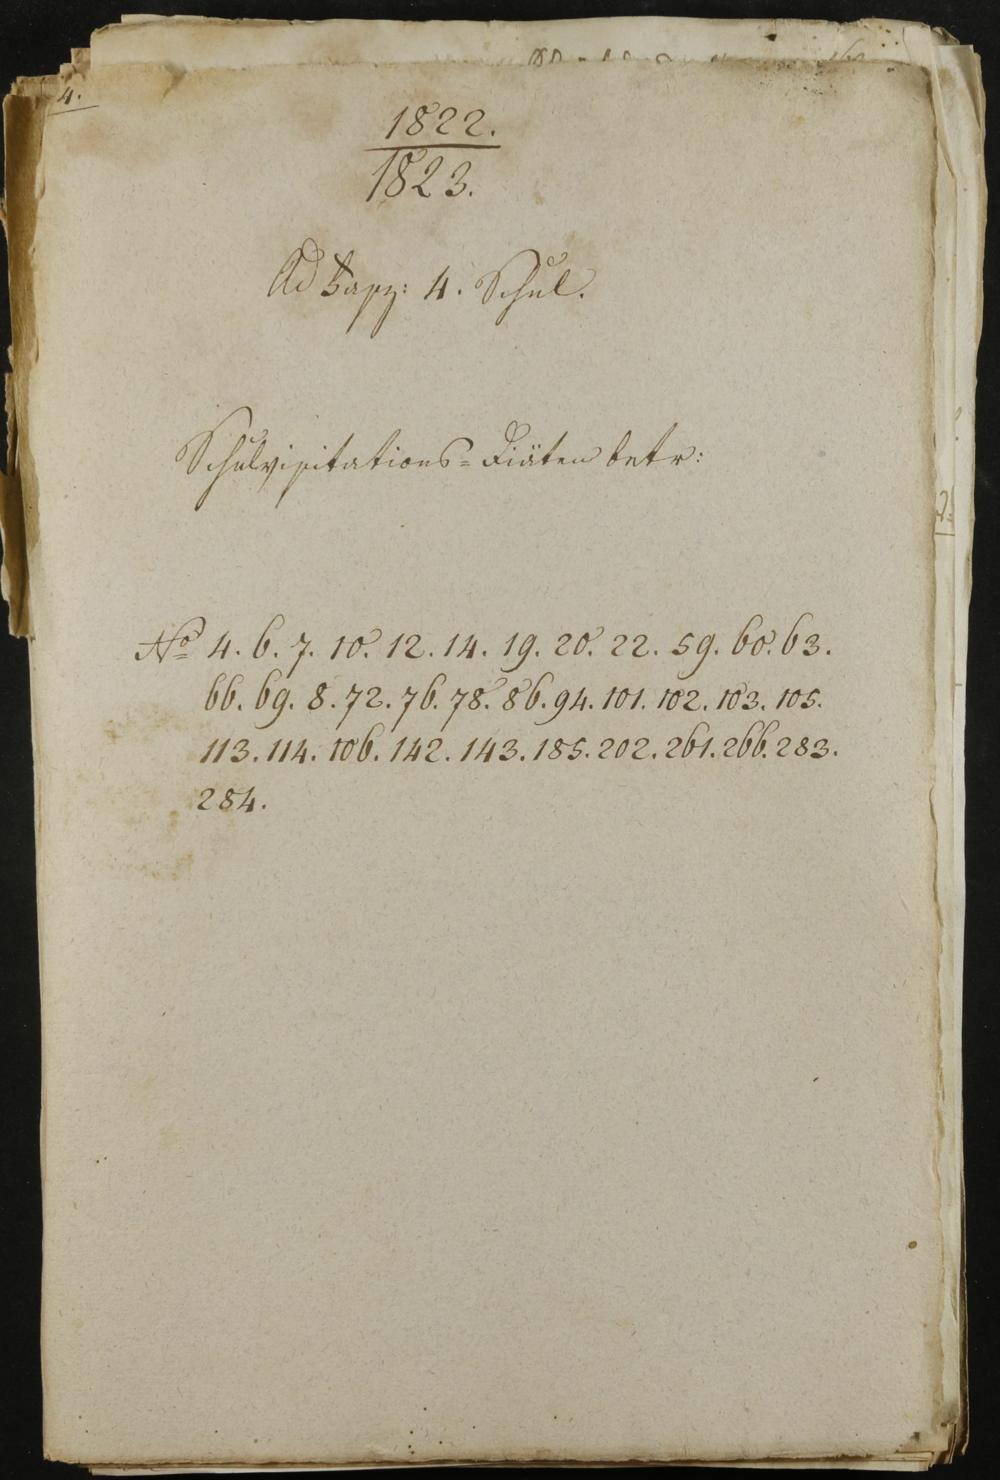 4.
1822.
1823.
Ad 4. Schul.
Schulvisitations=Diäten betr:
No 4. 6. 7. 10. 12. 14. 19. 20. 22. 59. 60. 63.
66. 69. 8. 72. 76. 78. 86. 94. 101. 102. 103. 105.
113. 114. 106. 142. 143. 185. 202. 261. 266. 283.
284.